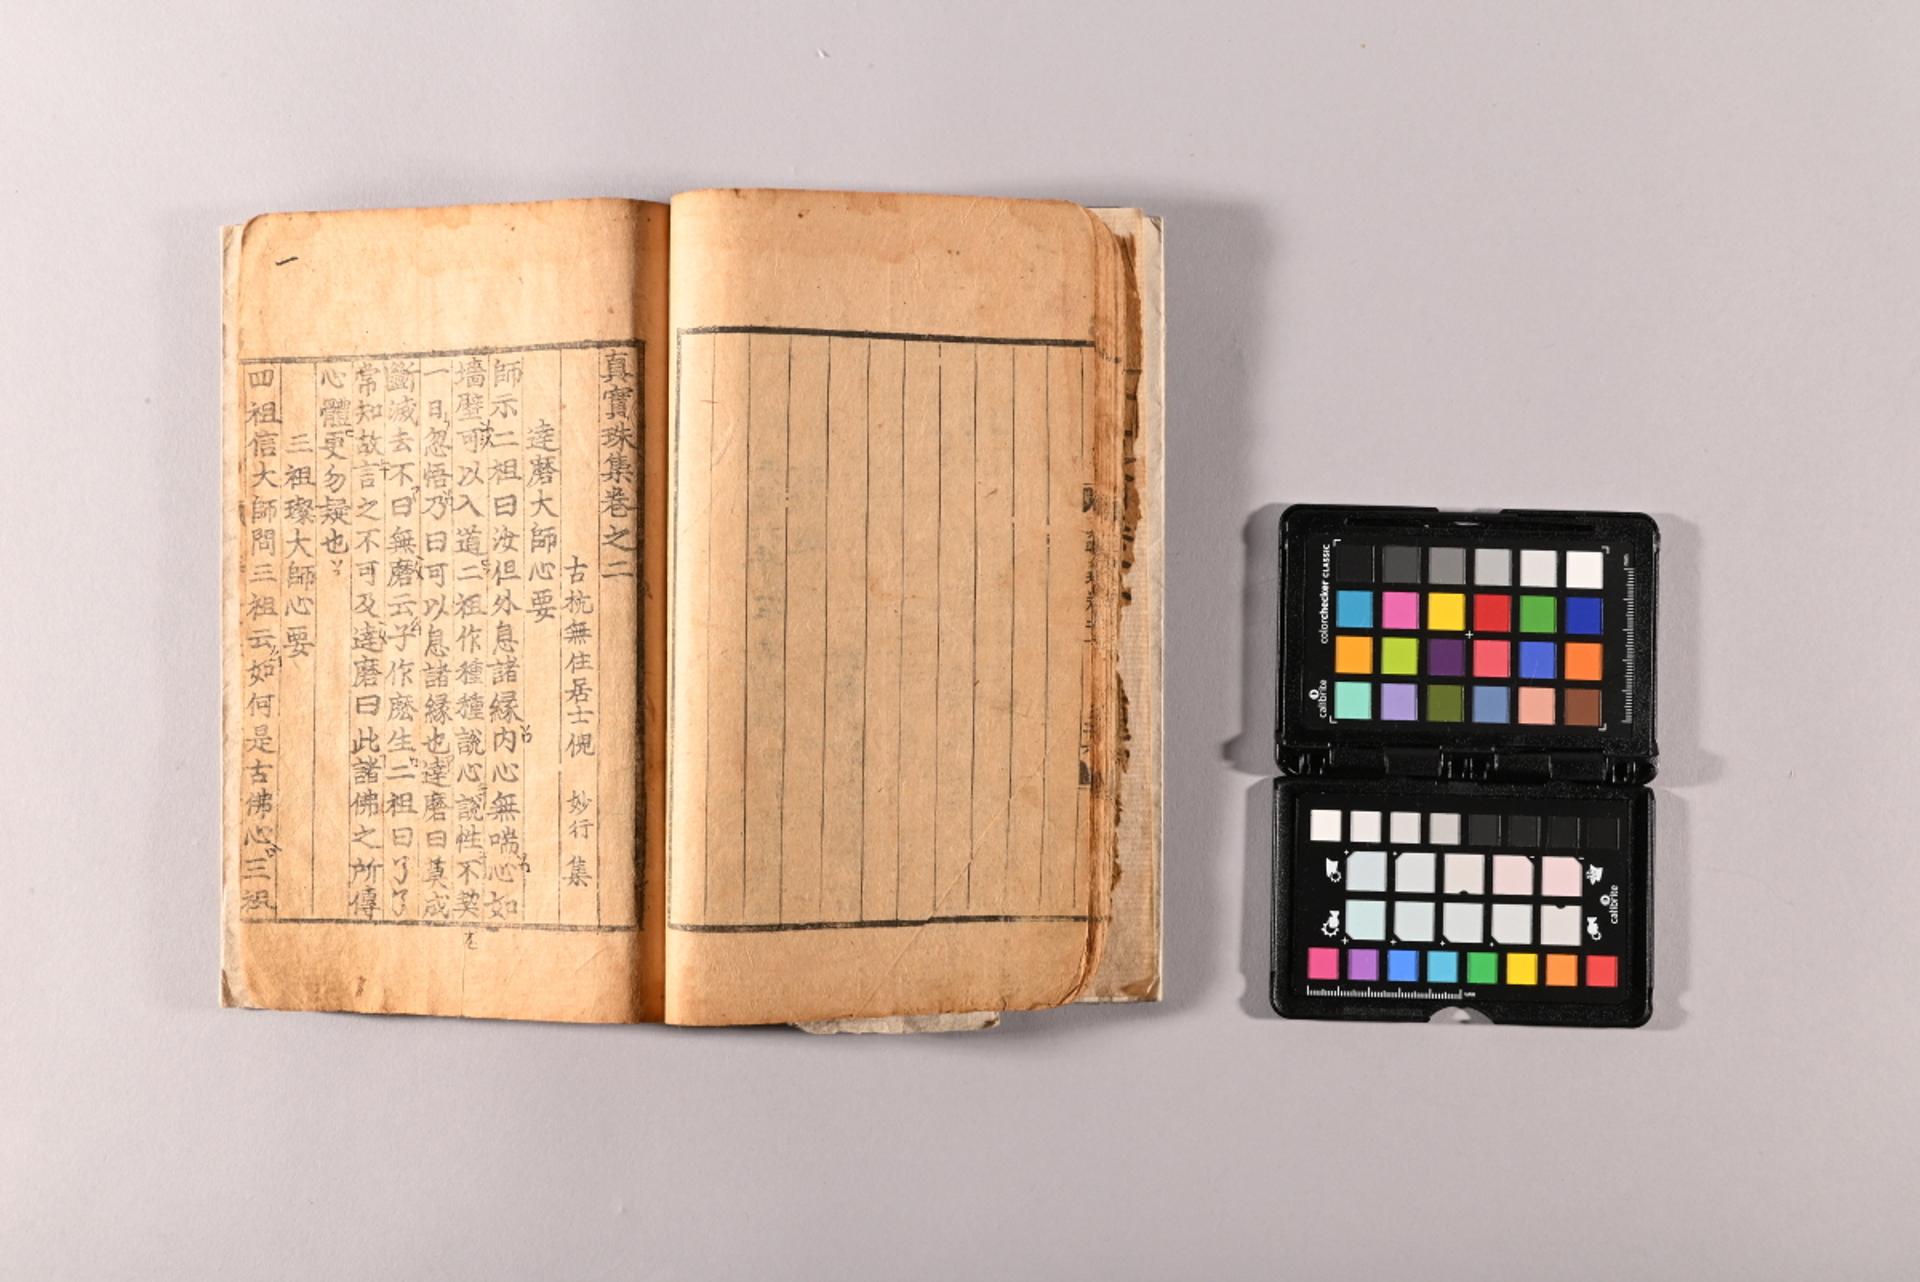 真實珠集卷之二
古杭無住居士倪 妙行 集
達磨大師心要
師示二祖曰汝但外息諸緣内心無喘心如
墻壁可以入道二祖作種種說心說性不契
一日忽悟乃曰可以息諸緣也達磨曰莫成
斷滅去不曰無磨云子作麽生二祖曰了了
常知故言之不可及達磨曰此諸佛之所傳
心體更勿疑也
三祖璨大師心要
四祖信大師問三祖云如何是古佛心三祖
一
colorchecker CLASSIC
calibrite
calibrite